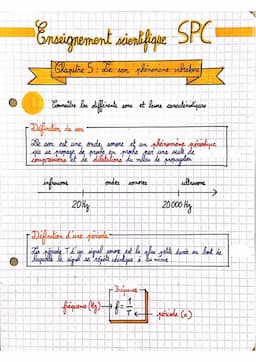 Enseignement scientifique SPC
Chapitre 5 : Le son phénomène vibratoire
Connaître les différents sons et leurs caractéristiques
Définition de son
Le son est une onde sonore et un phénomène périodique
qui se propage de proche en proche par une suite de
compressions et de dilatations du milieu de propagation
infrasons ondes sonores ultrasons
20 Hz 20 000 Hz
Définition d'une période
La période T d'un signal sonore est la plus petite durée au bout de
laquelle le signal se répète identique à lui même
fréquence
fréquence (Hz) f = 1/T période (s)